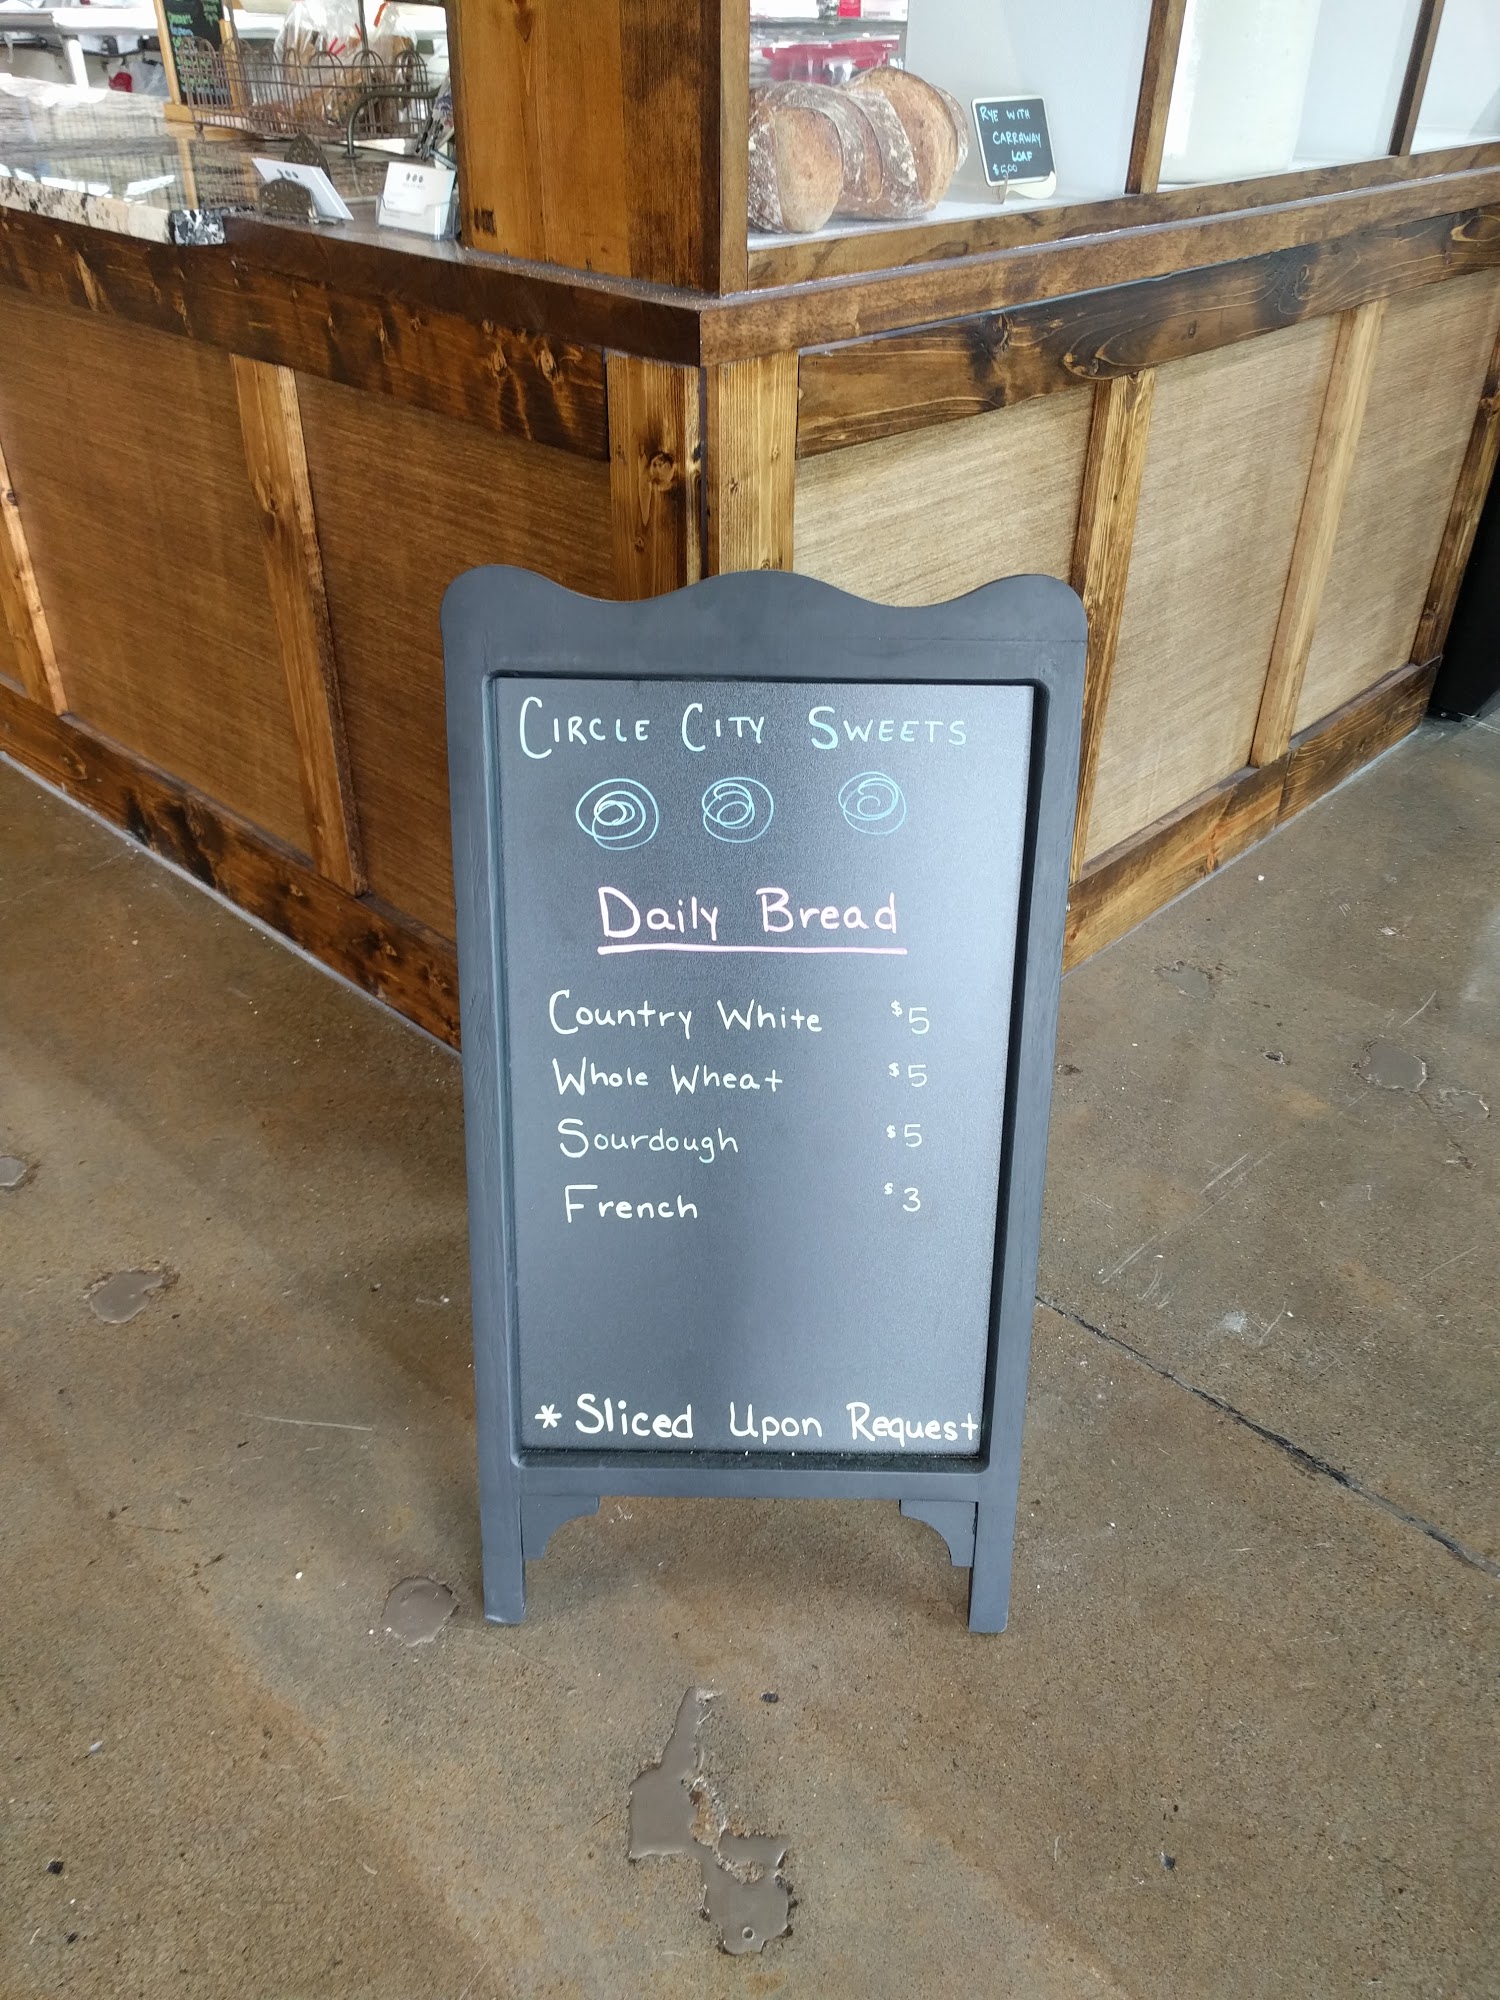 RYE WITH
CARRAWAY
LOAF
$5.00
CIRCLE CITY SWEETS
Daily Bread
Country White $5
Whole Wheat $5
Sourdough $5
French $3
* Sliced Upon Request